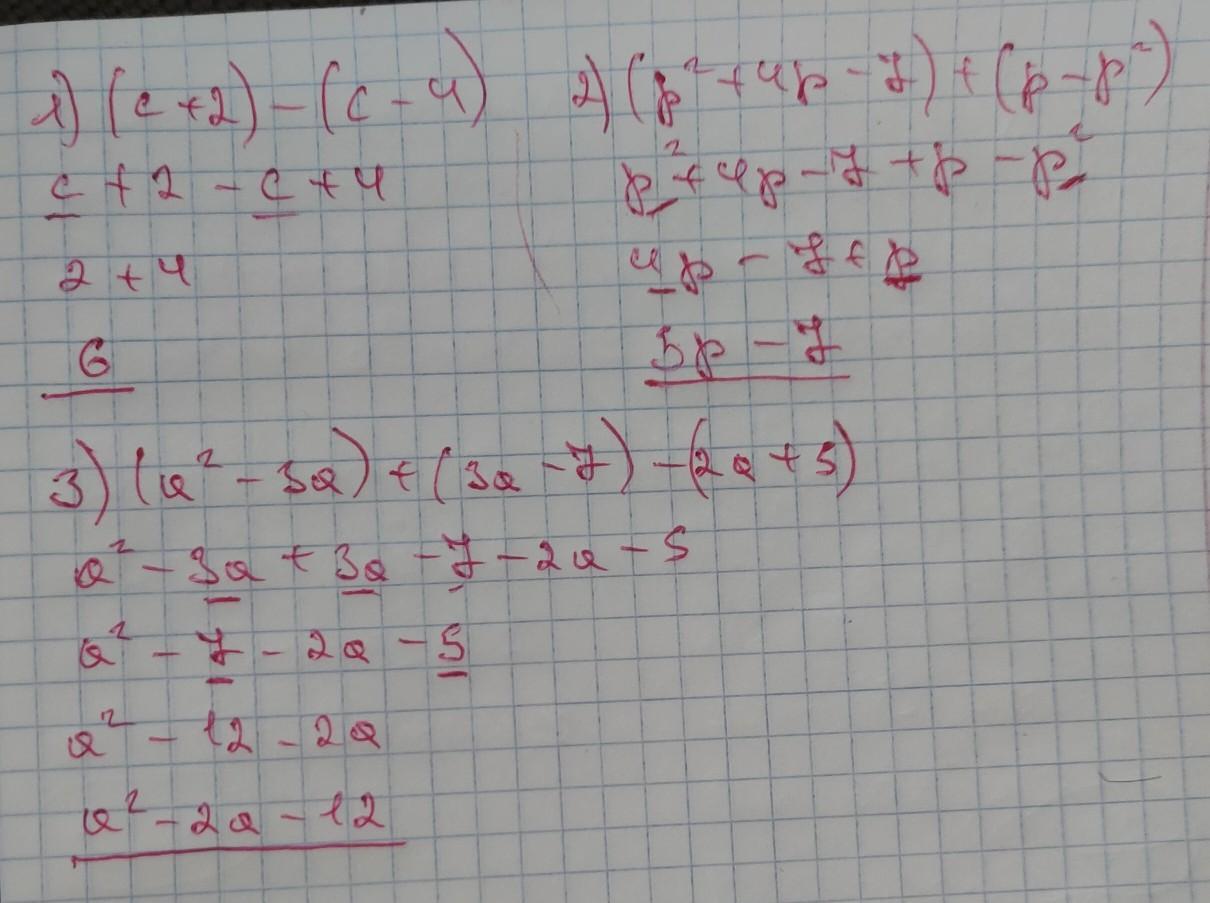 1) (c + 2) - (c - 4)
c + 2 - c + 4
2 + 4
6
2) (p² + 4p - 7) + (p - p²)
p² + 4p - 7 + p - p²
4p - 7 + p
5p - 7
3) (a² - 3a) + (3a - 7) - (2a + 5)
a² - 3a + 3a - 7 - 2a - 5
a² - 7 - 2a - 5
a² - 12 - 2a
a² - 2a - 12